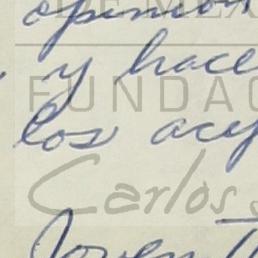 opinion
y hace
FUNDAC
los acu
Carlos S
Joven